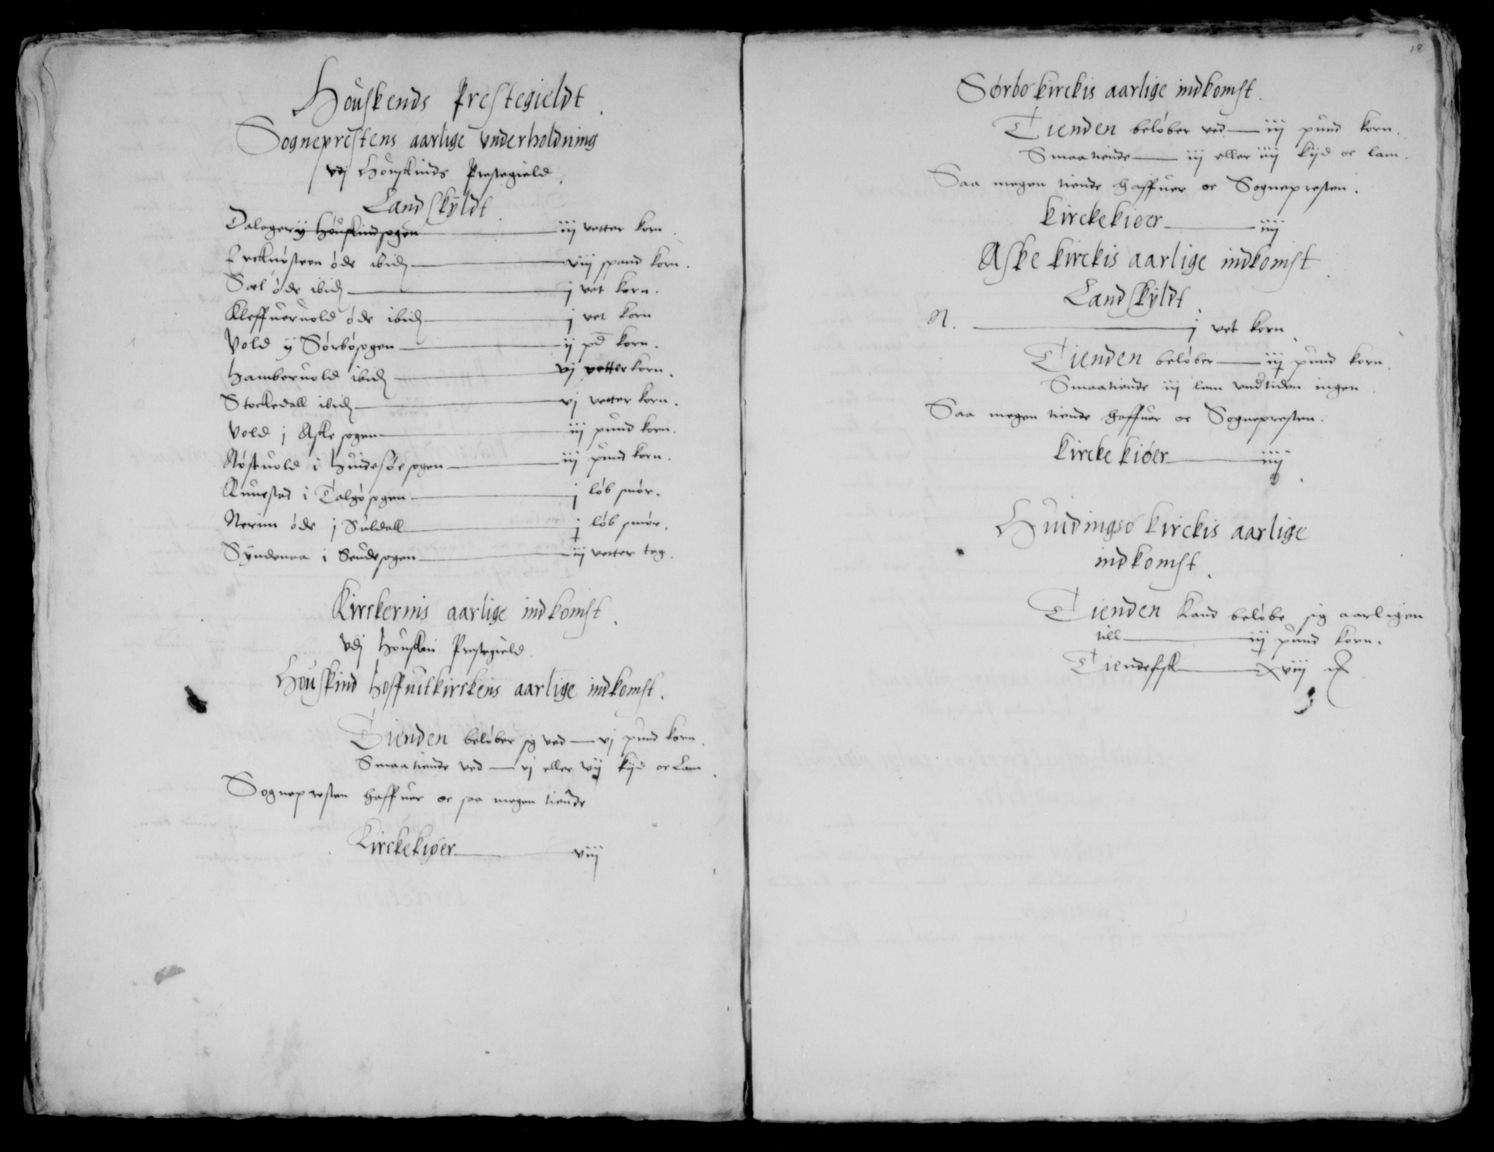 Houskends Prestegieldt
Sogneprestens aarlige Vnderholdning
vdj Houskinds Prestegield.
Landskyldt
Dalogerij Houskindsogen iij vetter korn.
øde ibid viij spand korn.
Sæl øde ibid j vet korn.
Kleffueruold øde ibid j vet korn
Vold ij Sørbøsogen ij pd korn.
Hamberuold ibid vj vetter korn.
Stockedall ibid vj vetter korn.
Vold j Aske sogen iij pund korn.
Nøstuold i Huidesøe sogen iij pund korn.
Runestad i Talgøsogen j løb smør.
Nerim øde j Suldall j løb smør.
Syndenaa i Soudesogen iij vetter
Kirckernis aarlige indkomst.
Vdj Houskin Prestegield.
Houskind hoffuitkirckens aarlige indkomst.
Tienden beløber sig ved vj pund korn.
Smaatiende ved vj eller vij kijd oc Lam.
Sognepresten haffuer oc saa megen tiende
Kirckekiøer viij
18
Sørbø kirckis aarlige indkomst.
Tienden beløber ved iij pund korn.
Smaatiende iij eller iiij kijd oc lam.
Saa megen tiende haffuer oc Sognepresten.
Kirckekiøer iiij
Aske kirckis aarlige indkomst
Landskyldt
N. j vet korn
Tienden beløber iij pund korn.
Smaatiende iij lam vndtiden ingen.
Saa megen tiende haffuer oc Sognepresten.
Kirckekiøer iiij
Huidingsø kirckis aarlige
indkomst.
Tienden kand beløbe sig aarligen
till iij pund korn.
Tiendefisk xviij